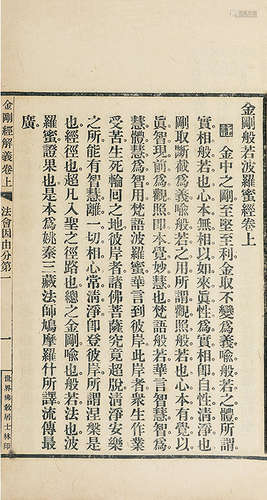 金剛般若波羅蜜經卷上
註 金中之剛至堅至利金取不變爲義喩般若之體所謂
實相般若也心本無相以如來眞性爲實相卽自性淸淨也
剛取斷截爲義喩般若之用所謂觀照般若也心本有覺以
眞智現前爲觀照卽本覺妙慧也梵語般若華言智慧智爲
慧體慧爲智用梵語波羅蜜華言到彼岸此岸者衆生作業
受苦生死輪回之地彼岸者諸佛菩薩究竟超脫淸淨安樂
之所能有智慧離一切相心常淸淨卽登彼岸所謂涅槃是
也經徑也超凡入聖之徑路也總之金剛喩也般若法也波
羅蜜證果也是本爲姚秦三藏法師鳩摩羅什所譯流傳最
廣
金剛經解義卷上 法會因由分第一
一
世界佛敎居士林印